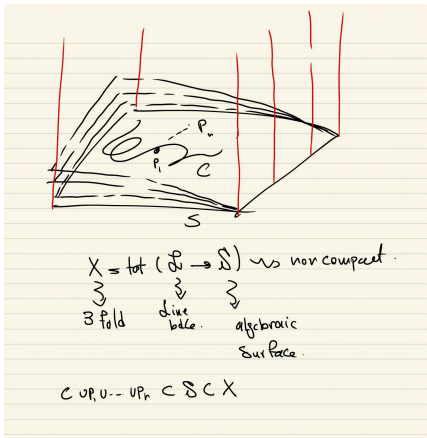 Pₙ
P₁
C
S
X = tot (L → S) ⇝ non compact.
3 fold Line bdle. algebraic surface.
C ∪ P₁ ∪ --- ∪ Pₙ ⊂ S ⊂ X